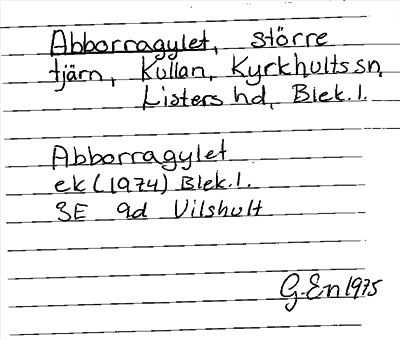 Abborragylet, större
tjärn, Kullan, Kyrkhults sn,
Listers hd, Blek. l.
Abborragylet
ek (1974) Blek. l.
3E 9d Vilshult
G. En 1975